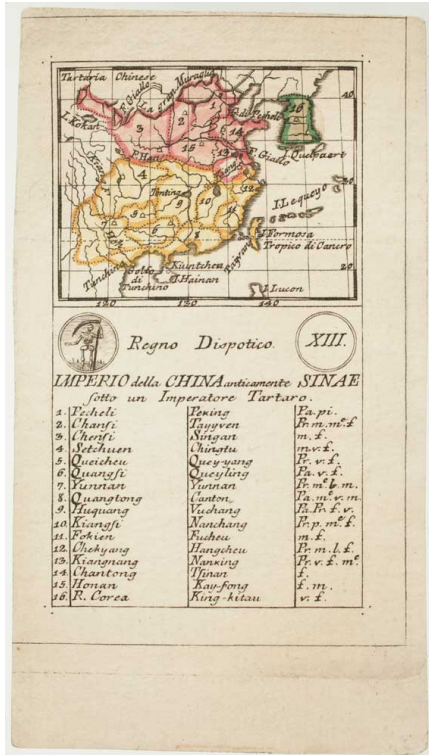 Tartaria Chinese
La gran Muraglia
F. Giallo
40
I. Kokar
G. di Pecheli
F. Giallo
I. Quelpaert
16
1
2
3
14
15
13
F. Han
4
Tonting
12
10
9
8
I. Lequeyo
I. Formosa
Tropico di Cancro
Tunchino
Golfo
di
Tunchino
Kuntcheu
I. Hainan
20
I. Lucon
120
140
Regno Dispotico.
XIII.
IMPERIO della CHINA anticamente SINAE
sotto un Imperatore Tartaro.
1. Pecheli Peking Pa. pi.
2. Chansi Tayyven Pr. m. mᵉ. f
3. Chensi Singan m. f.
4. Setchuen Chingtu m. v. f.
5. Queicheu Quey-yang Pr. v. f.
6. Quangsi Queyling Pa. v. f.
7. Yunnan Yunnan Pr. mᵉ. b. m.
8. Quangtong Canton Pa. mᵉ. v. m.
9. Huquang Vuchang Pa. Pr. f. v.
10. Kiangsi Nanchang Pr. p. mᵉ. f.
11. Fokien Fucheu m. f.
12. Chekyang Hangcheu Pr. m. l. f.
13. Kiangnang Nanking Pr. v. f. mᵉ
14. Chantong Tsinan f.
15. Honan Kay-fong f. m.
16. R. Corea King-kitau v. f.